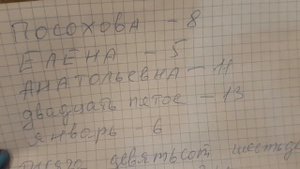 ПОСОХОВА - 8
ЕЛЕНА - 5
АНАТОЛЬЕВНА - 11
двадцать пятое - 13
январь - 6
девятьсот